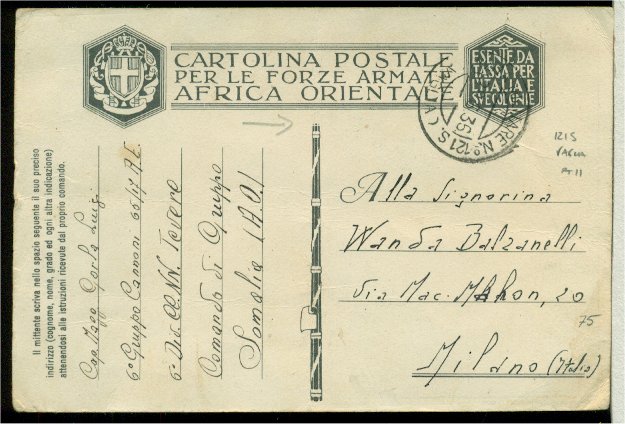 CARTOLINA POSTALE
PER LE FORZE ARMATE
AFRICA ORIENTALE
ESENTE DA
TASSA PER
L'ITALIA E
SVE COLONIE
N.o 121 S.
36
121 S
75
Alla Signorina
Wanda Balzanelli
Via Mac. Mahon, 20
Milano (Italia)
Il mittente scriva nello spazio seguente il suo preciso
indirizzo (cognome, nome, grado ed ogni altra indicazione)
attenendosi alle istruzioni ricevute dal proprio comando.
Gorla Luigi
6° Gruppo Cannoni 65/17
6a Div. CC. NN. Tevere
Comando di Gruppo
Somalia (A.O.)